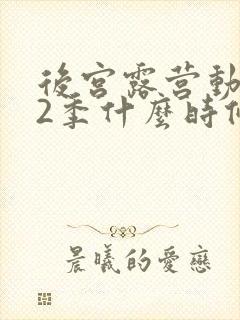 後宮露营動
2季什麼時
晨曦的愛戀